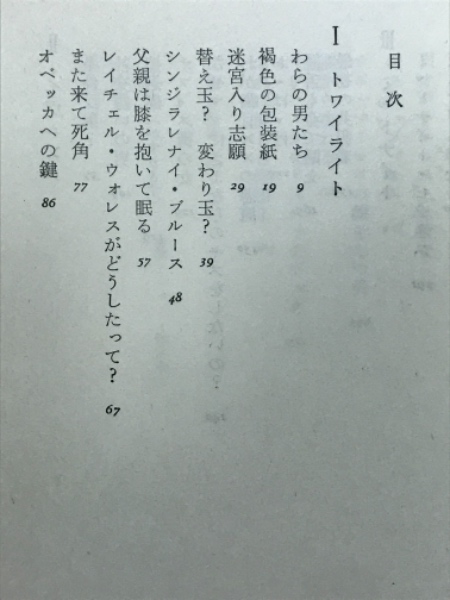 目次
I トワイライト
わらの男たち 9
褐色の包装紙 19
迷宮入り志願 29
替え玉? 変わり玉? 39
シンジラレナイ・ブルース 48
父親は膝を抱いて眠る 57
レイチェル・ウォレスがどうしたって? 67
また来て死角 77
オベッカへの鍵 86